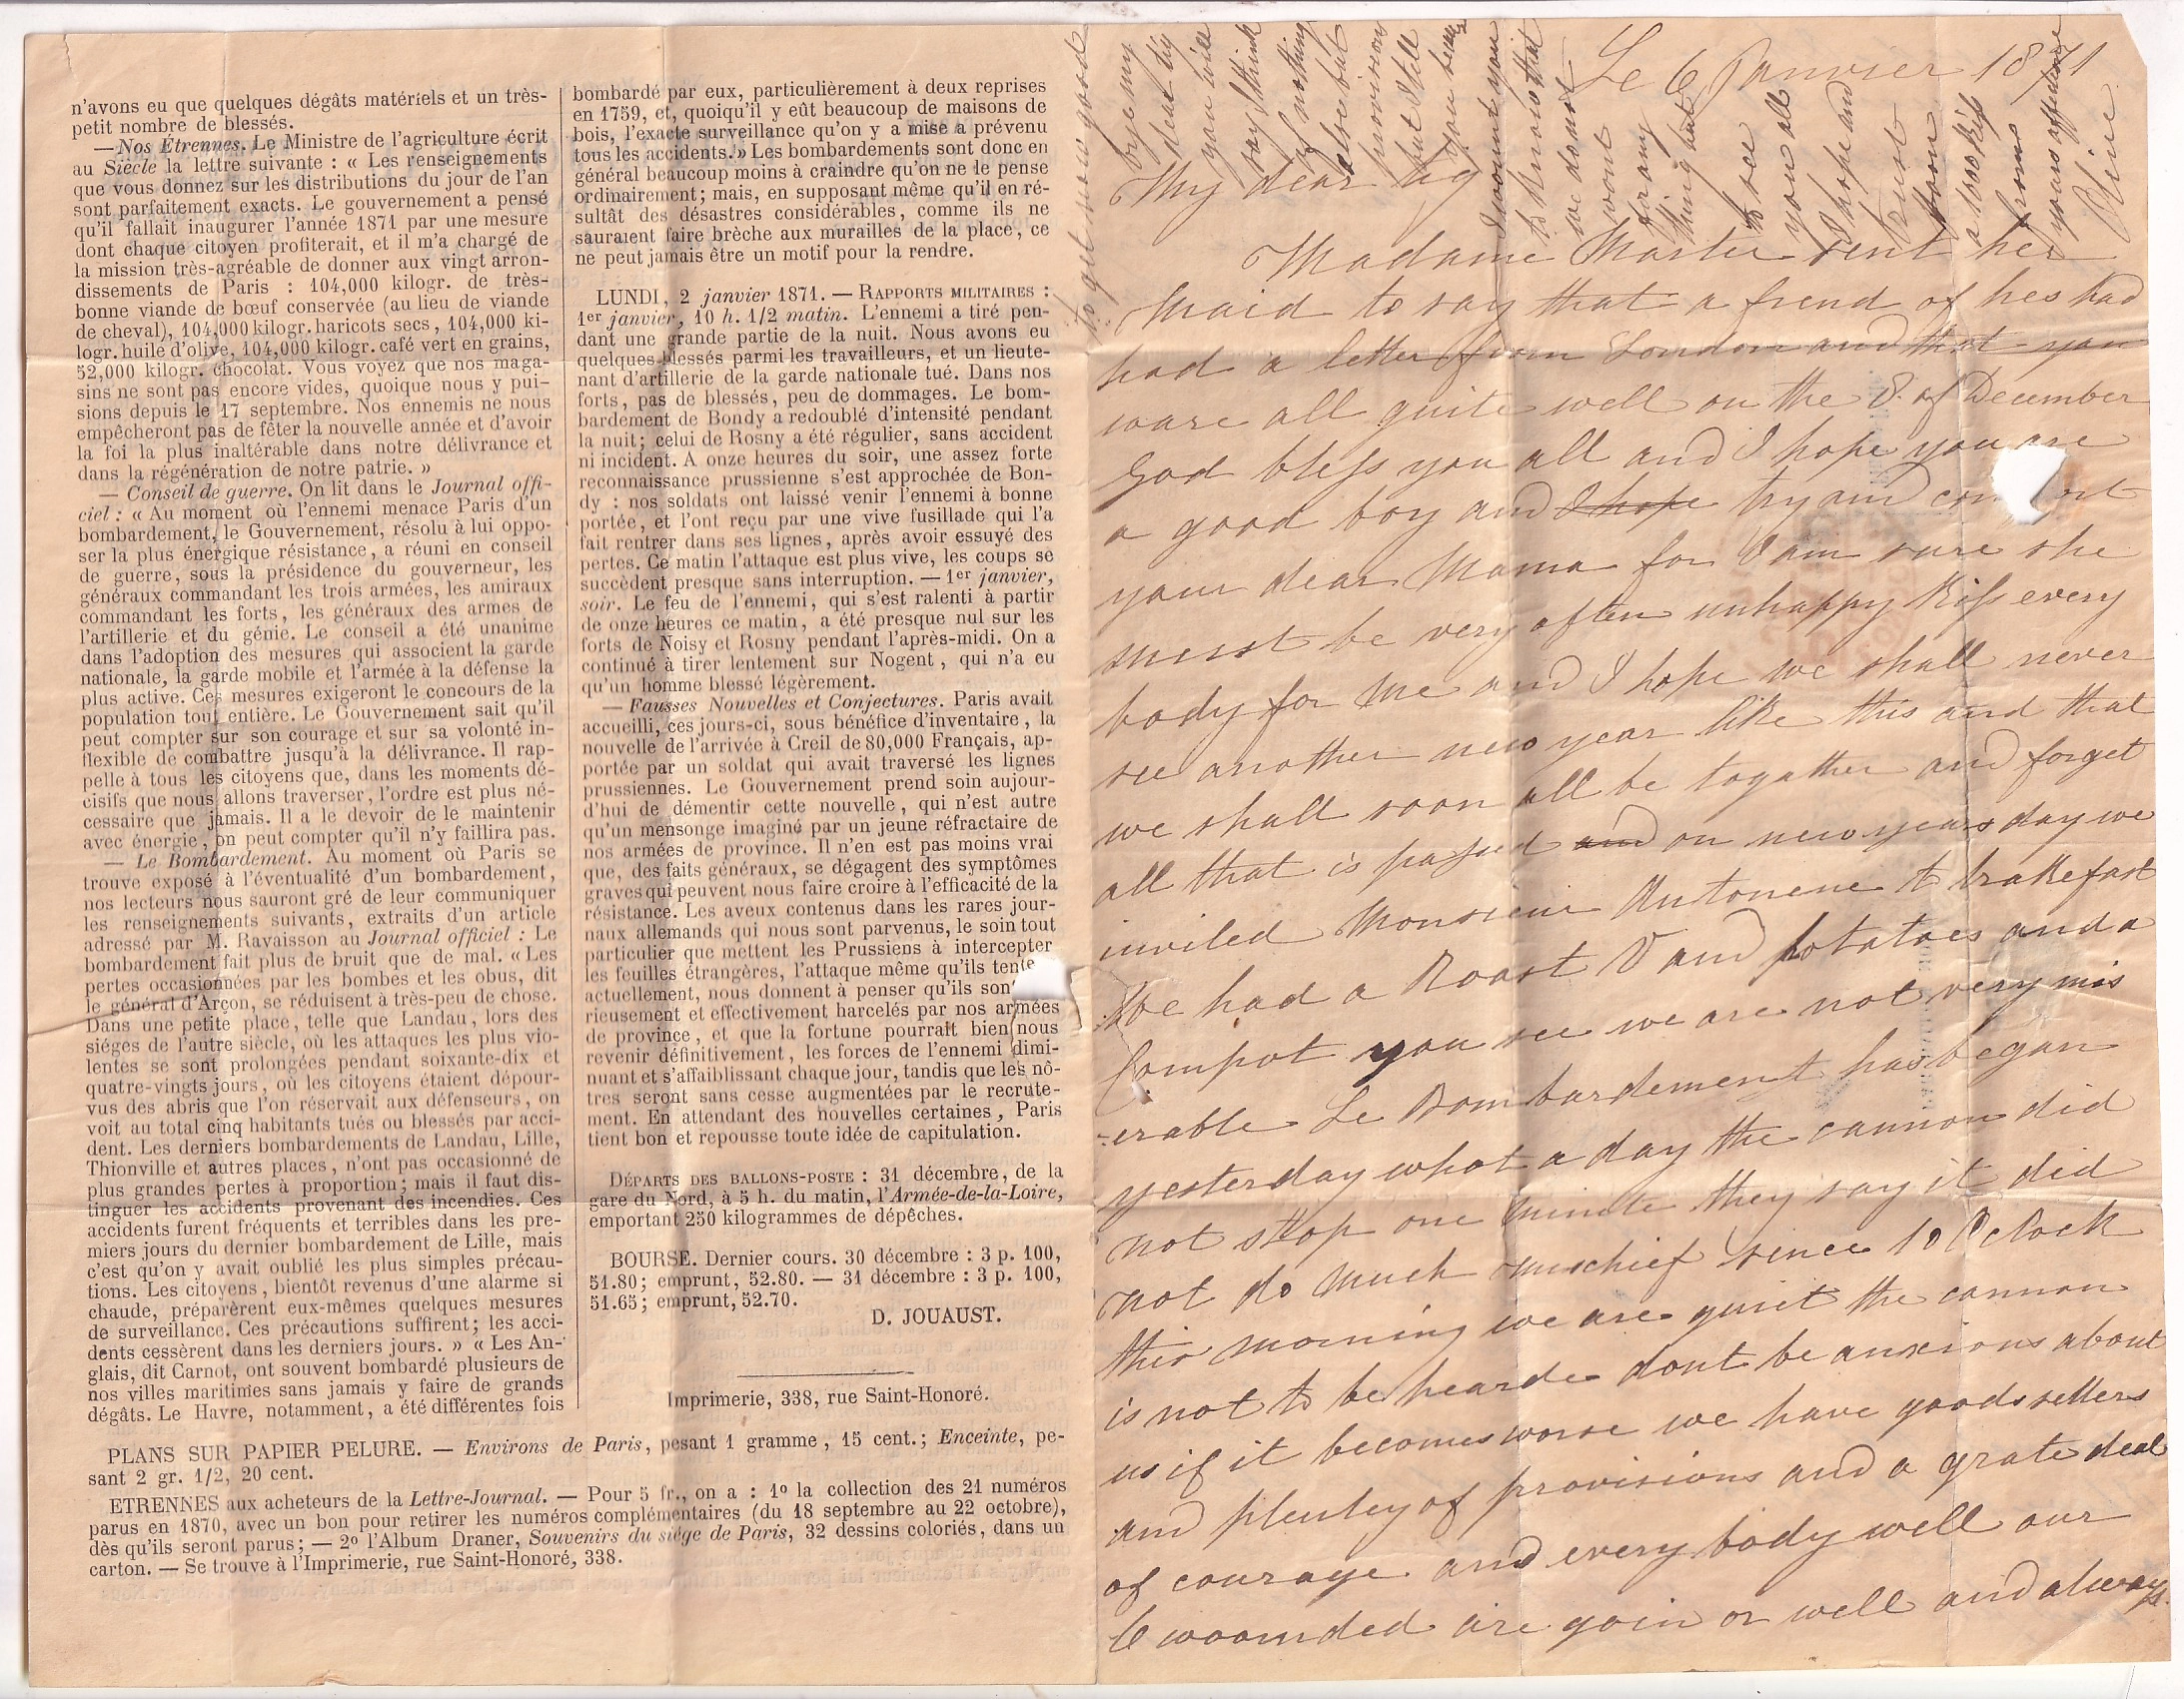 n'avons eu que quelques dégâts matériels et un très-
petit nombre de blessés.
—Nos Etrennes. Le Ministre de l'agriculture écrit
au Siècle la lettre suivante : « Les renseignements
que vous donnez sur les distributions du jour de l'an
sont parfaitement exacts. Le gouvernement a pensé
qu'il fallait inaugurer l'année 1871 par une mesure
dont chaque citoyen profiterait, et il m'a chargé de
la mission très-agréable de donner aux vingt arron-
dissements de Paris : 104,000 kilogr. de très-
bonne viande de bœuf conservée (au lieu de viande
de cheval), 104,000 kilogr. haricots secs, 104,000 ki-
logr. huile d'olive, 104,000 kilogr. café vert en grains,
52,000 kilogr. chocolat. Vous voyez que nos maga-
sins ne sont pas encore vides, quoique nous y pui-
sions depuis le 17 septembre. Nos ennemis ne nous
empêcheront pas de fêter la nouvelle année et d'avoir
la foi la plus inaltérable dans notre délivrance et
dans la régénération de notre patrie. »
— Conseil de guerre. On lit dans le Journal offi-
ciel : « Au moment où l'ennemi menace Paris d'un
bombardement, le Gouvernement, résolu à lui oppo-
ser la plus énergique résistance, a réuni en conseil
de guerre, sous la présidence du gouverneur, les
généraux commandant les trois armées, les amiraux
commandant les forts, les généraux des armes de
l'artillerie et du génie. Le conseil a été unanime
dans l'adoption des mesures qui associent la garde
nationale, la garde mobile et l'armée à la défense la
plus active. Ces mesures exigeront le concours de la
population tout entière. Le Gouvernement sait qu'il
peut compter sur son courage et sur sa volonté in-
flexible de combattre jusqu'à la délivrance. Il rap-
pelle à tous les citoyens que, dans les moments dé-
cisifs que nous allons traverser, l'ordre est plus né-
cessaire que jamais. Il a le devoir de le maintenir
avec énergie, on peut compter qu'il n'y faillira pas.
— Le Bombardement. Au moment où Paris se
trouve exposé à l'éventualité d'un bombardement,
nos lecteurs nous sauront gré de leur communiquer
les renseignements suivants, extraits d'un article
adressé par M. Ravaisson au Journal officiel : Le
bombardement fait plus de bruit que de mal. « Les
pertes occasionnées par les bombes et les obus, dit
le général d'Arçon, se réduisent à très-peu de chose.
Dans une petite place, telle que Landau, lors des
siéges de l'autre siècle, où les attaques les plus vio-
lentes se sont prolongées pendant soixante-dix et
quatre-vingts jours, où les citoyens étaient dépour-
vus des abris que l'on réservait aux défenseurs, on
voit au total cinq habitants tués ou blessés par acci-
dent. Les derniers bombardements de Landau, Lille,
Thionville et autres places, n'ont pas occasionné de
plus grandes pertes à proportion; mais il faut dis-
tinguer les accidents provenant des incendies. Ces
accidents furent fréquents et terribles dans les pre-
miers jours du dernier bombardement de Lille, mais
c'est qu'on y avait oublié les plus simples précau-
tions. Les citoyens, bientôt revenus d'une alarme si
chaude, préparèrent eux-mêmes quelques mesures
de surveillance. Ces précautions suffirent; les acci-
dents cessèrent dans les derniers jours. » « Les An-
glais, dit Carnot, ont souvent bombardé plusieurs de
nos villes maritimes sans jamais y faire de grands
dégâts. Le Havre, notamment, a été différentes fois
bombardé par eux, particulièrement à deux reprises
en 1759, et, quoiqu'il y eût beaucoup de maisons de
bois, l'exacte surveillance qu'on y a mise a prévenu
tous les accidents.» Les bombardements sont donc en
général beaucoup moins à craindre qu'on ne le pense
ordinairement; mais, en supposant même qu'il en ré-
sultât des désastres considérables, comme ils ne
sauraient faire brèche aux murailles de la place, ce
ne peut jamais être un motif pour la rendre.
LUNDI, 2 janvier 1871. — RAPPORTS MILITAIRES :
1er janvier, 10 h. 1/2 matin. L'ennemi a tiré pen-
dant une grande partie de la nuit. Nous avons eu
quelques blessés parmi les travailleurs, et un lieute-
nant d'artillerie de la garde nationale tué. Dans nos
forts, pas de blessés, peu de dommages. Le bom-
bardement de Bondy a redoublé d'intensité pendant
la nuit; celui de Rosny a été régulier, sans accident
ni incident. A onze heures du soir, une assez forte
reconnaissance prussienne s'est approchée de Bon-
dy : nos soldats ont laissé venir l'ennemi à bonne
portée, et l'ont reçu par une vive fusillade qui l'a
fait rentrer dans ses lignes, après avoir essuyé des
pertes. Ce matin l'attaque est plus vive, les coups se
succèdent presque sans interruption. — 1er janvier,
soir. Le feu de l'ennemi, qui s'est ralenti à partir
de onze heures ce matin, a été presque nul sur les
forts de Noisy et Rosny pendant l'après-midi. On a
continué à tirer lentement sur Nogent, qui n'a eu
qu'un homme blessé légèrement.
— Fausses Nouvelles et Conjectures. Paris avait
accueilli, ces jours-ci, sous bénéfice d'inventaire, la
nouvelle de l'arrivée à Creil de 80,000 Français, ap-
portée par un soldat qui avait traversé les lignes
prussiennes. Le Gouvernement prend soin aujour-
d'hui de démentir cette nouvelle, qui n'est autre
qu'un mensonge imaginé par un jeune réfractaire de
nos armées de province. Il n'en est pas moins vrai
que, des faits généraux, se dégagent des symptômes
graves qui peuvent nous faire croire à l'efficacité de la
résistance. Les aveux contenus dans les rares jour-
naux allemands qui nous sont parvenus, le soin tout
particulier que mettent les Prussiens à intercepter
les feuilles étrangères, l'attaque même qu'ils tente
actuellement, nous donnent à penser qu'ils son
rieusement et effectivement harcelés par nos armées
de province, et que la fortune pourrait bien nous
revenir définitivement, les forces de l'ennemi dimi-
nuant et s'affaiblissant chaque jour, tandis que les nô-
tres seront sans cesse augmentées par le recrute-
ment. En attendant des nouvelles certaines, Paris
tient bon et repousse toute idée de capitulation.
DÉPARTS DES BALLONS-POSTE : 31 décembre, de la
gare du Nord, à 5 h. du matin, l'Armée-de-la-Loire,
emportant 250 kilogrammes de dépêches.
BOURSE. Dernier cours. 30 décembre : 3 p. 100,
51.80; emprunt, 52.80. — 31 décembre : 3 p. 100,
51.65; emprunt, 52.70.
D. JOUAUST.
Imprimerie, 338, rue Saint-Honoré.
PLANS SUR PAPIER PELURE. — Environs de Paris, pesant 1 gramme, 15 cent.; Enceinte, pe-
sant 2 gr. 1/2, 20 cent.
ETRENNES aux acheteurs de la Lettre-Journal. — Pour 5 fr., on a : 1º la collection des 21 numéros
parus en 1870, avec un bon pour retirer les numéros complémentaires (du 18 septembre au 22 octobre),
dès qu'ils seront parus; — 2º l'Album Draner, Souvenirs du siége de Paris, 32 dessins coloriés, dans un
carton. — Se trouve à l'Imprimerie, rue Saint-Honoré, 338.
Le 6 Janvier 1871
My dear
Madame Master sent her
maid to say that a frend of hes had
had a letter from London and that you
ware all quite well on the 8. of December
God bless you all and I hope you are
a good boy and I hope try and com ort
your dear Mama for I am sure she
must be very often unhappy Kiss every
body for me and I hope we shall never
see another new year like this and that
we shall soon all be togather and forget
all that is passed and on new years day we
invited Monsieur Antonene to brakefast
We had a Roast V and potatoes and a
Compot you see we are not very mis
-erable Le Bombardement has began
yesterday what a day the cannon did
not stop one minute they say it did
not do much mischief since 10 O clock
this morning we are quiet the cannon
is not to be hearde dont be anxions about
us if it becomes worse we have good sellers
and plentey of provisions and a grate deal
of courage and every body well our
6 woounded are goin on well and always
to get now good
bye my
dear
you will
say I think
of nothing
else but
provisions
but I tell
you becaus
I wount you
to know that
we do not
wont
for any
thing but
to see
you all
I hope and
trust
soon
a 1000 Kiss
from
yours affctione
Oline